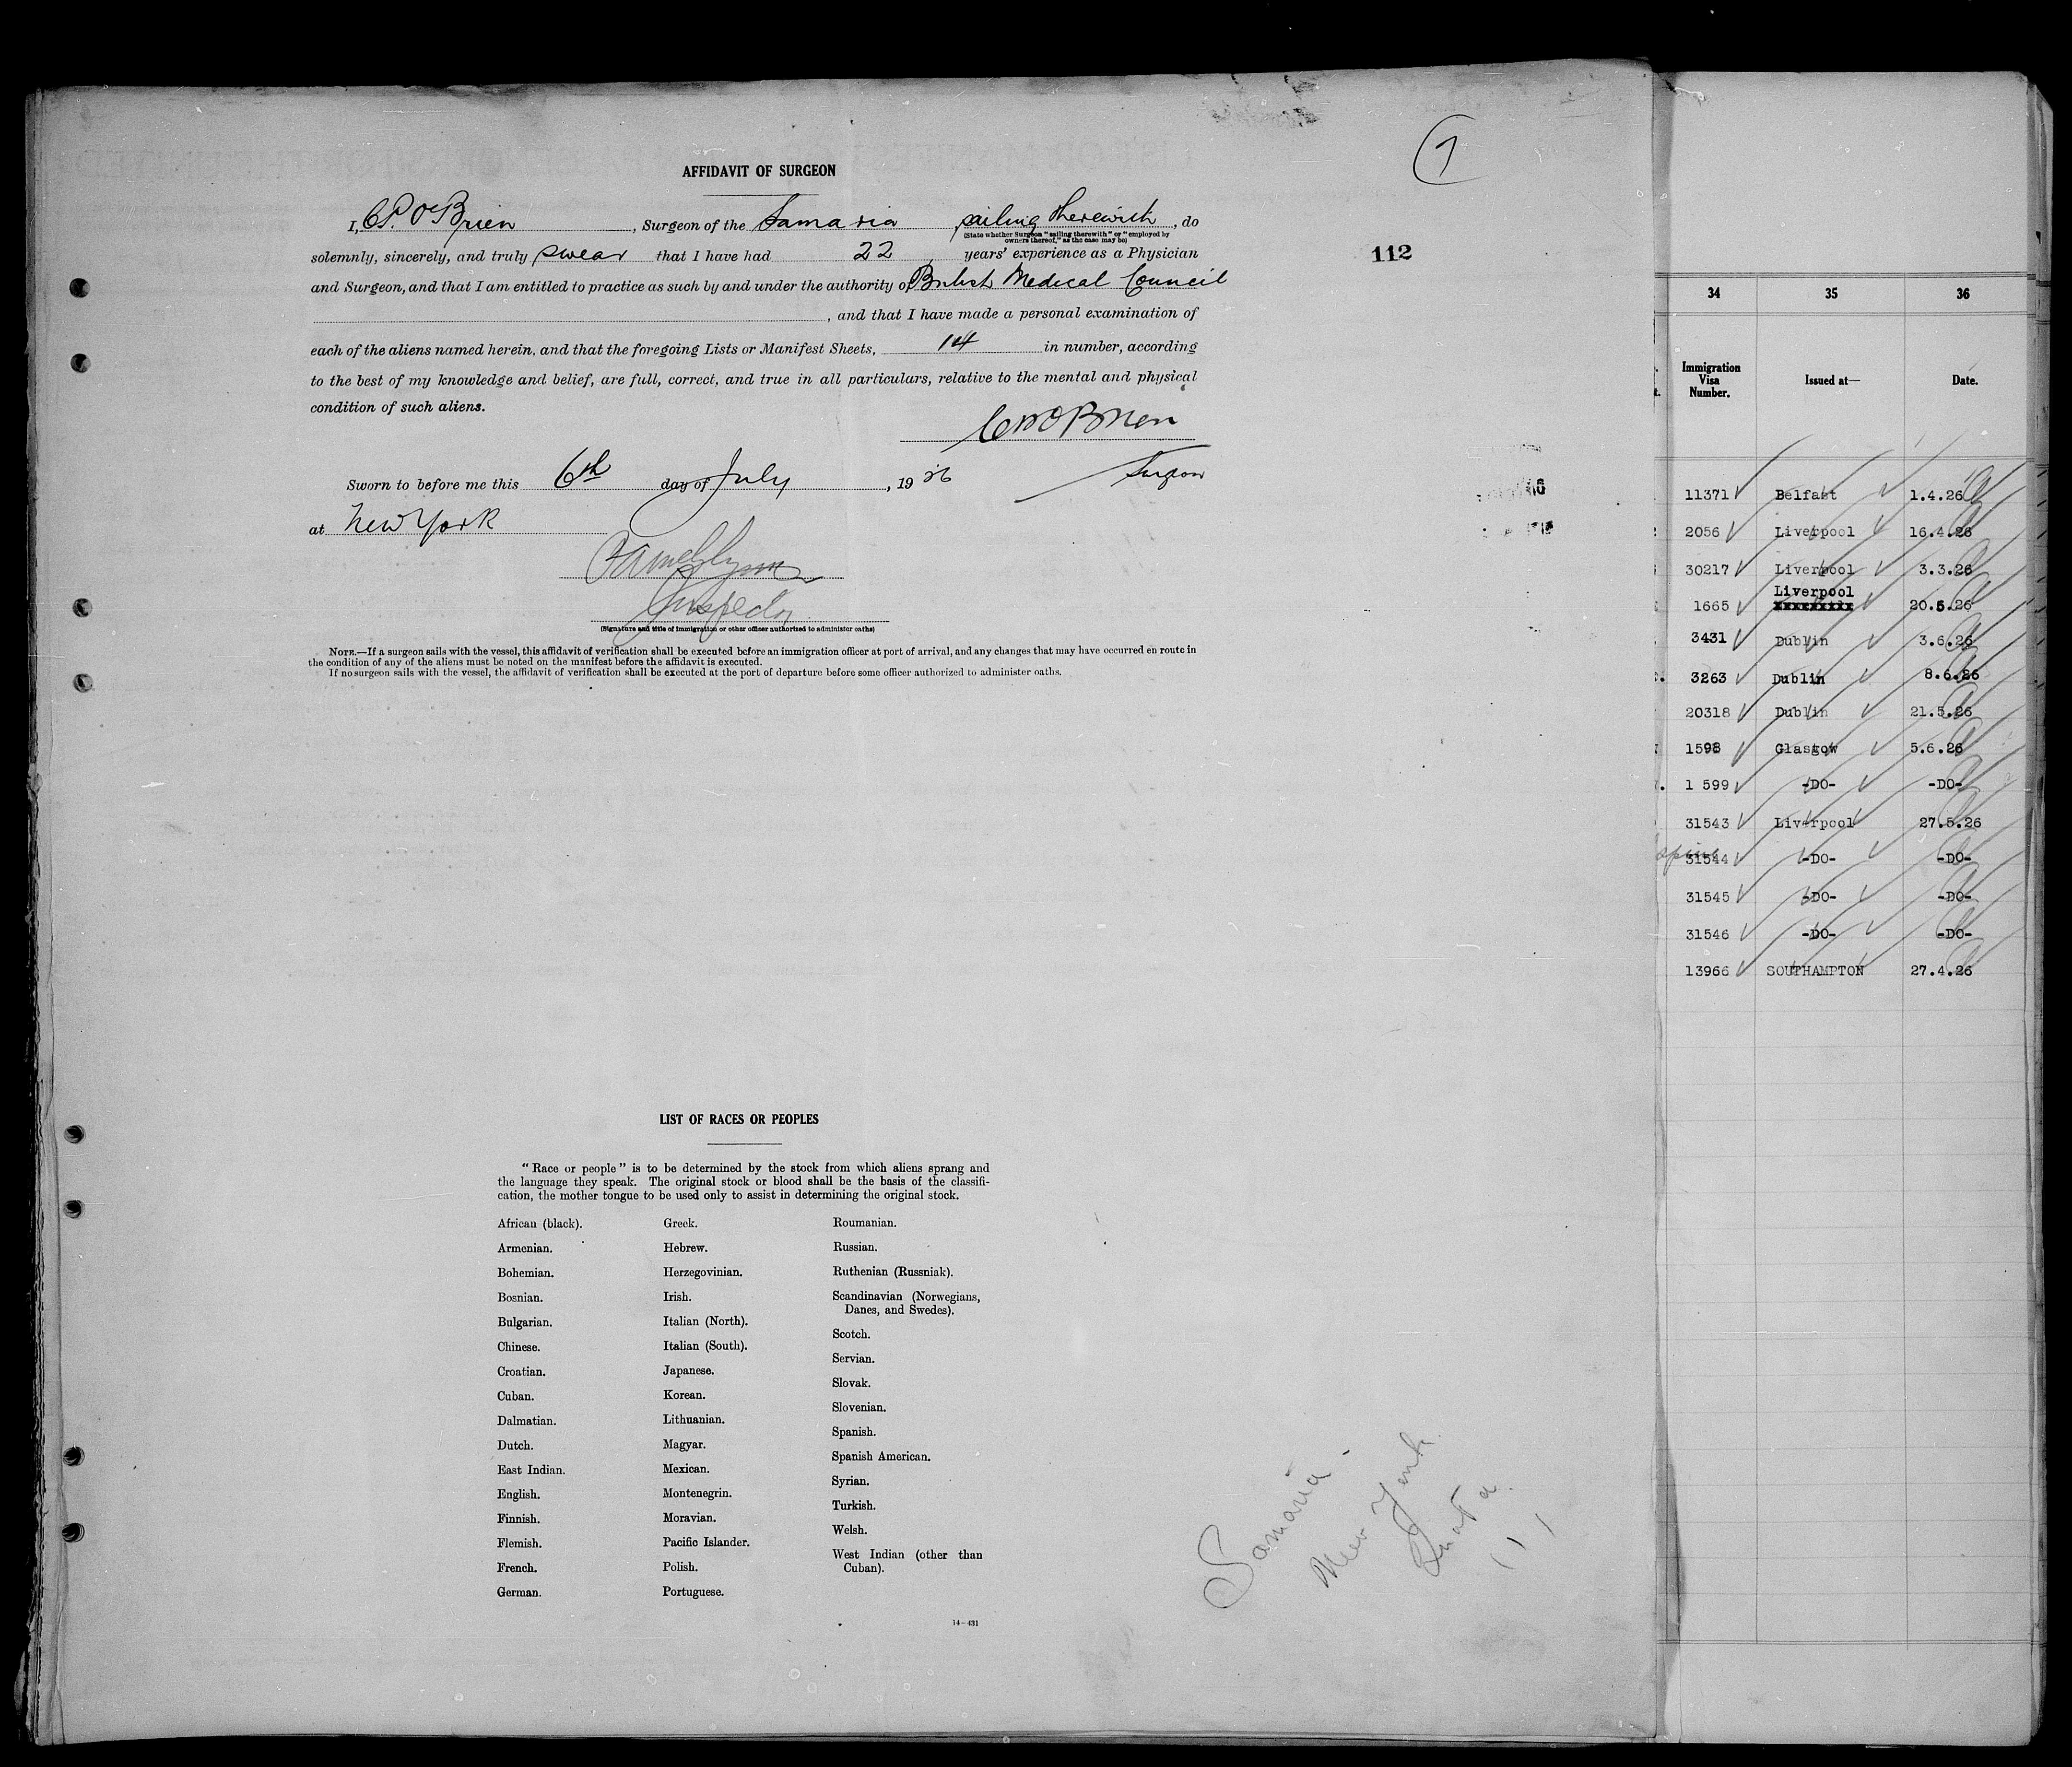 (7
AFFIDAVIT OF SURGEON
I, C.P. O'Brien, Surgeon of the Samaria sailing therewith, do
(State whether Surgeon "sailing therewith" or "employed by
owners thereof," as the case may be)
solemnly, sincerely, and truly swear that I have had 22 years' experience as a Physician
112
and Surgeon, and that I am entitled to practice as such by and under the authority of British Medical Council
, and that I have made a personal examination of
each of the aliens named herein, and that the foregoing Lists or Manifest Sheets, 14 in number, according
to the best of my knowledge and belief, are full, correct, and true in all particulars, relative to the mental and physical
condition of such aliens.
CPO'Brien
Surgeon
Sworn to before me this 6th day of July, 1926
at New York
Inspector
(Signature and title of immigration or other officer authorized to administer oaths)
NOTE.—If a surgeon sails with the vessel, this affidavit of verification shall be executed before an immigration officer at port of arrival, and any changes that may have occurred en route in
the condition of any of the aliens must be noted on the manifest before the affidavit is executed.
If no surgeon sails with the vessel, the affidavit of verification shall be executed at the port of departure before some officer authorized to administer oaths.
LIST OF RACES OR PEOPLES
"Race or people" is to be determined by the stock from which aliens sprang and
the language they speak. The original stock or blood shall be the basis of the classifi-
cation, the mother tongue to be used only to assist in determining the original stock.
African (black).
Armenian.
Bohemian.
Bosnian.
Bulgarian.
Chinese.
Croatian.
Cuban.
Dalmatian.
Dutch.
East Indian.
English.
Finnish.
Flemish.
French.
German.
Greek.
Hebrew.
Herzegovinian.
Irish.
Italian (North).
Italian (South).
Japanese.
Korean.
Lithuanian.
Magyar.
Mexican.
Montenegrin.
Moravian.
Pacific Islander.
Polish.
Portuguese.
Roumanian.
Russian.
Ruthenian (Russniak).
Scandinavian (Norwegians,
Danes, and Swedes).
Scotch.
Servian.
Slovak.
Slovenian.
Spanish.
Spanish American.
Syrian.
Turkish.
Welsh.
West Indian (other than
Cuban).
14—431
Samaria
New York
Quota
34 35 36
Immigration
Visa
Number.
Issued at—
Date.
11371 Belfast 1.4.26
2056 Liverpool 16.4.26
30217 Liverpool 3.3.26
Liverpool
1665 xxxxxxxxx 20.5.26
3431 Dublin 3.6.26
3263 Dublin 8.6.26
20318 Dublin 21.5.26
1598 Glasgow 5.6.26
1 599 -DO- -DO-
31543 Liverpool 27.5.26
31544 -DO- -DO-
31545 -DO- -DO-
31546 -DO- -DO-
13966 SOUTHAMPTON 27.4.26